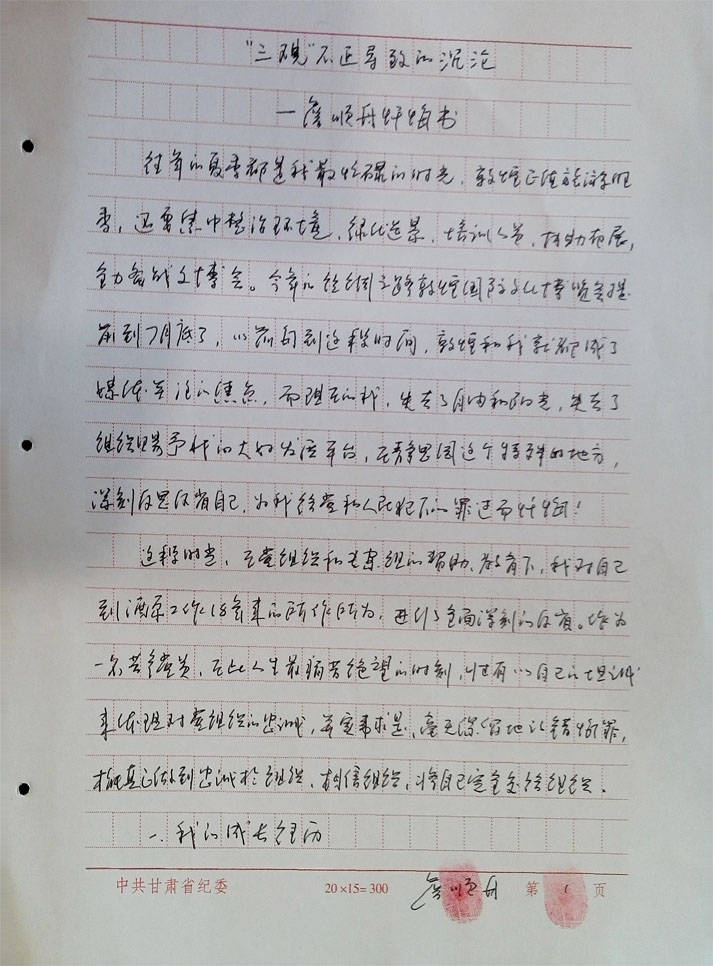 “三观”不正导致的沉沦
—詹顺舟忏悔书
往年的夏季都是我最忙碌的时光，敦煌正值旅游旺
季，还要集中整治环境，绿化造景，培训人员，布展，
全力备战文博会。今年的丝绸之路敦煌国际文化博览会提
前到7月底了，以前每到这段时间，敦煌和我就都成了
媒体关注的焦点，而现在的我，失去了自由和阳光，失去了
组织赐予我的大好发展平台，在静思园这个特殊的地方，
深刻反思反省自己，为我给党和人民犯下的罪过而忏悔！
这段时光，在党组织和专案组的帮助、教育下，我对自己
到酒泉工作18年来的所作所为，进行了全面深刻的反省。作为
一名共产党员，在此人生最痛苦绝望的时刻，只有以自己的坦诚
来体现对党组织的忠诚，实事求是、毫无保留地认错悔罪，
才能真正做到忠诚于组织、相信组织，将自己完全交给组织。
一、我的成长经历
中共甘肃省纪委 20×15=300 詹顺舟 第 1 页